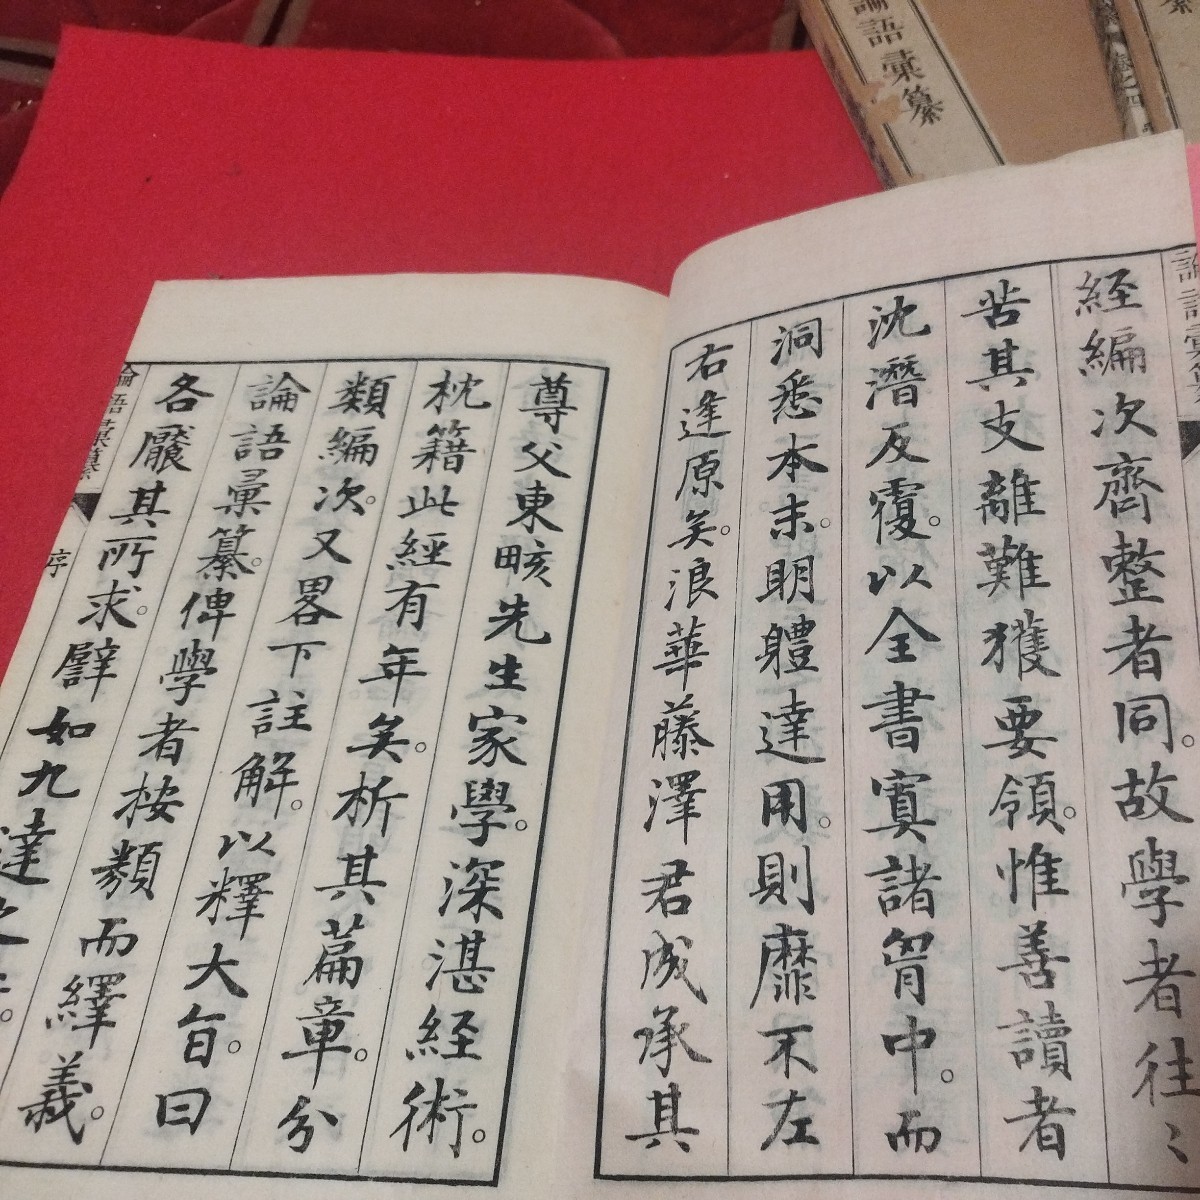 論語彙纂
論語彙纂
經編次齊整者同。故學者往〻
苦其支離難獲要領。惟善讀者
沈潛反覆。以全書寘諸胷中。而
洞悉本末。明體達用。則靡不左
右逢原矣。浪華藤澤君成承其
尊父東畡先生家學。深湛經術。
枕籍此經有年矣。析其篇章。分
類編次。又畧下註解。以釋大旨。曰
論語彙纂。俾學者按類而繹義。
各厭其所求。譬如九達之
論語彙纂
序